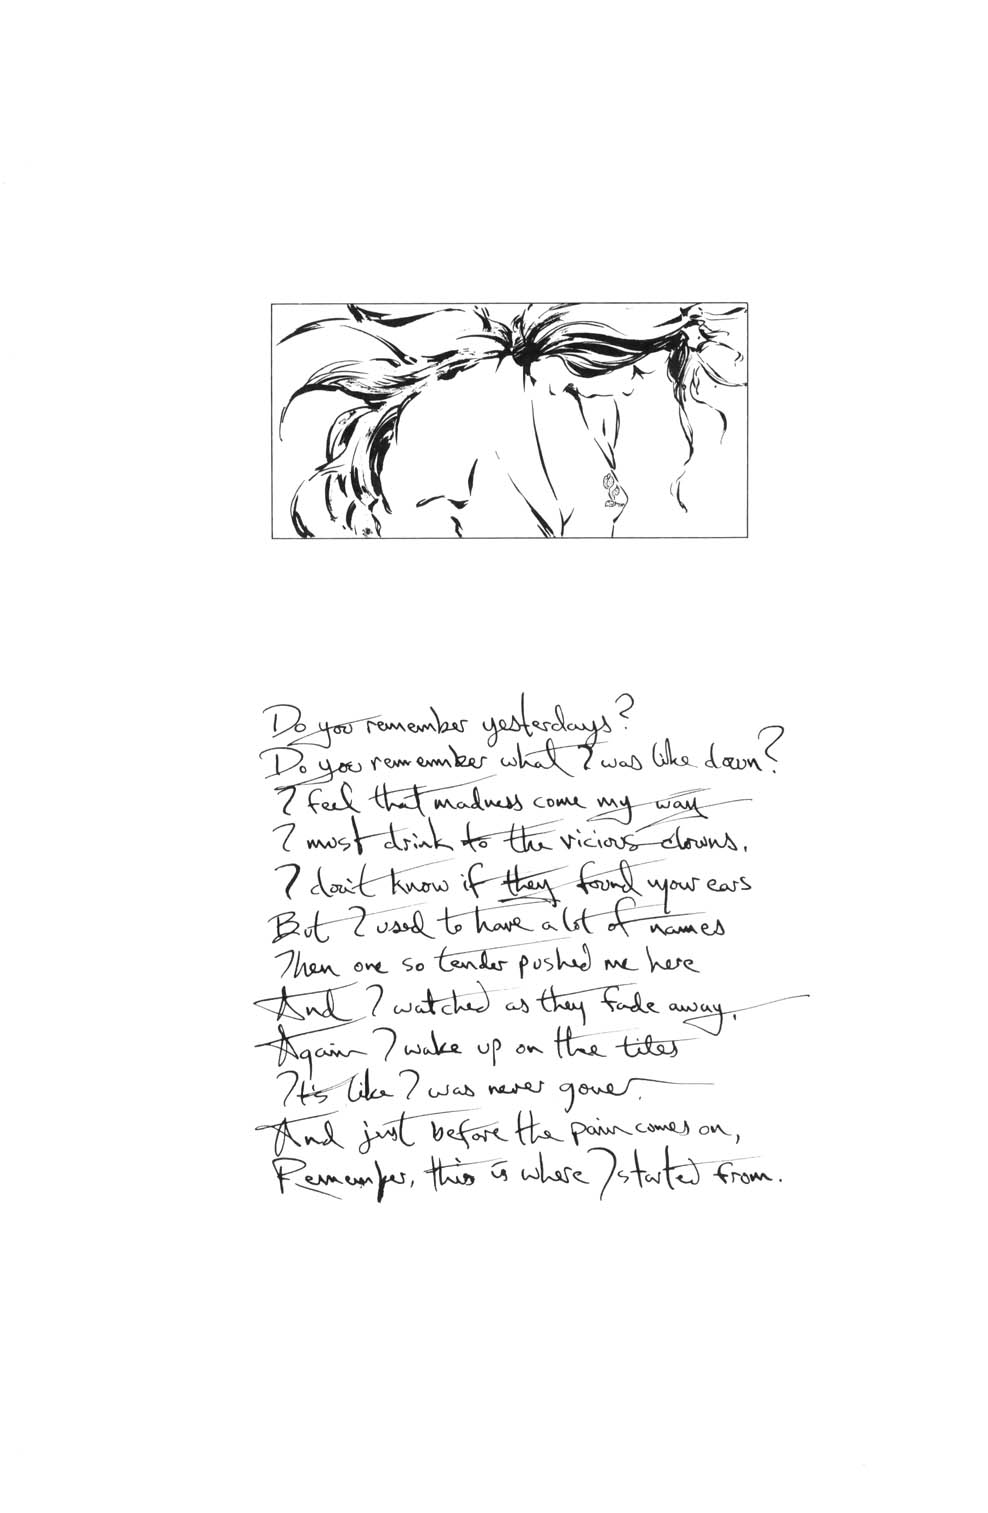 Do you remember yesterdays?
Do you remember what I was like down?
I feel that madness come my way
I must drink to the vicious clowns.
I don't know if they found your ears
But I used to have a lot of names
Then one so tender pushed me here
And I watched as they fade away.
Again I wake up on the tiles
It's like I was never gone.
And just before the pain comes on,
Remember, this is where I started from.